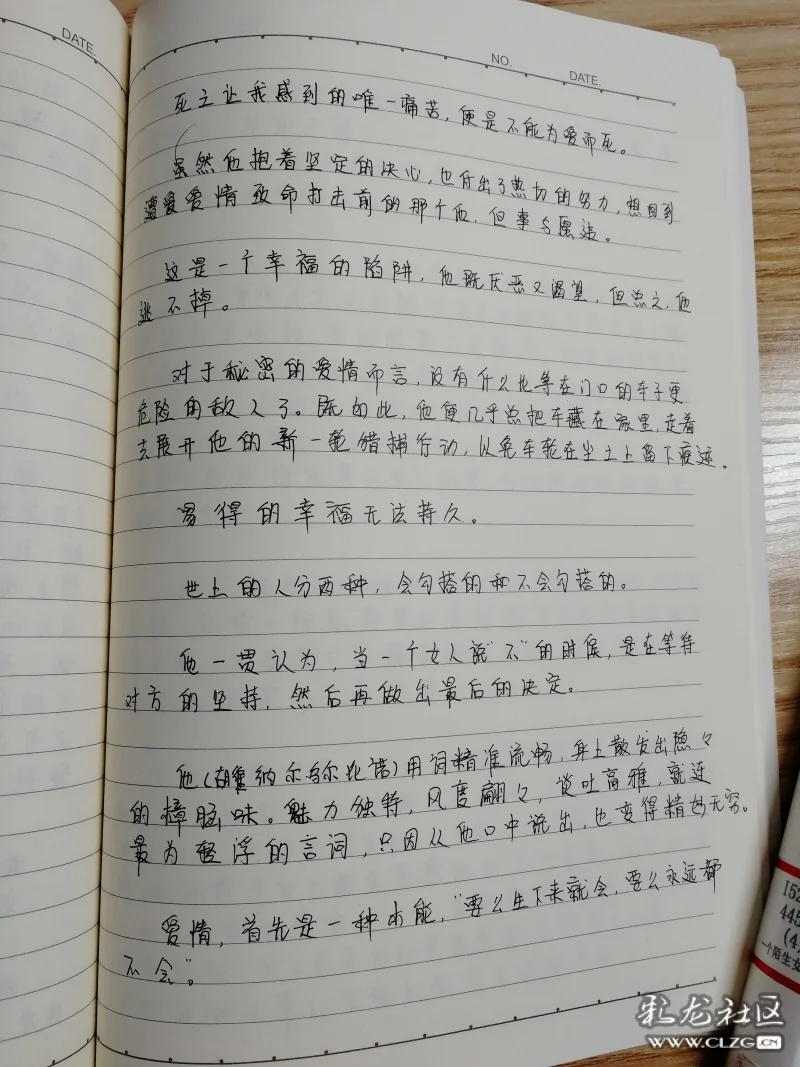 DATE.
NO.
DATE.
死之让我感到的唯一痛苦，便是不能为爱而死。
虽然他抱着坚定的决心，也付出了热切的努力，想回到
遭受爱情致命打击前的那个他，但事与愿违。
这是一个幸福的陷阱，他既厌恶又渴望，但总之，他
逃不掉。
对于秘密的爱情而言，没有什么比等在门口的车子更
危险的敌人了。既如此，他便几乎总把车藏在家里，走着
去展开他的新一轮猎捕行动，以免车轮在尘土上留下痕迹。
易得的幸福无法持久。
世上的人分两种，会勾搭的和不会勾搭的。
他一贯认为，当一个女人说“不”的时候，是在等待
对方的坚持，然后再做出最后的决定。
他（胡维纳尔·乌尔比诺）用词精准流畅，身上散发出隐々
的樟脑味。魅力独特，风度翩々，谈吐高雅，就连
最为轻浮的言词，只因从他口中说出，也变得精妙无穷。
爱情，首先是一种本能，“要么生下来就会，要么永远都
不会”。
I52
445
(4
一个陌生女
彩龙社区
WWW.CLZG.CN